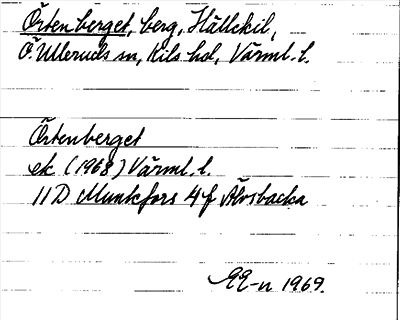 Örtenberget, berg, Hällekil,
Ö. Ulleruds sn, Kils hd, Värml. l.
Örtenberget
ek (1968) Värml. l.
11D Munkfors 4f Älvsbacka
EE-n 1969.